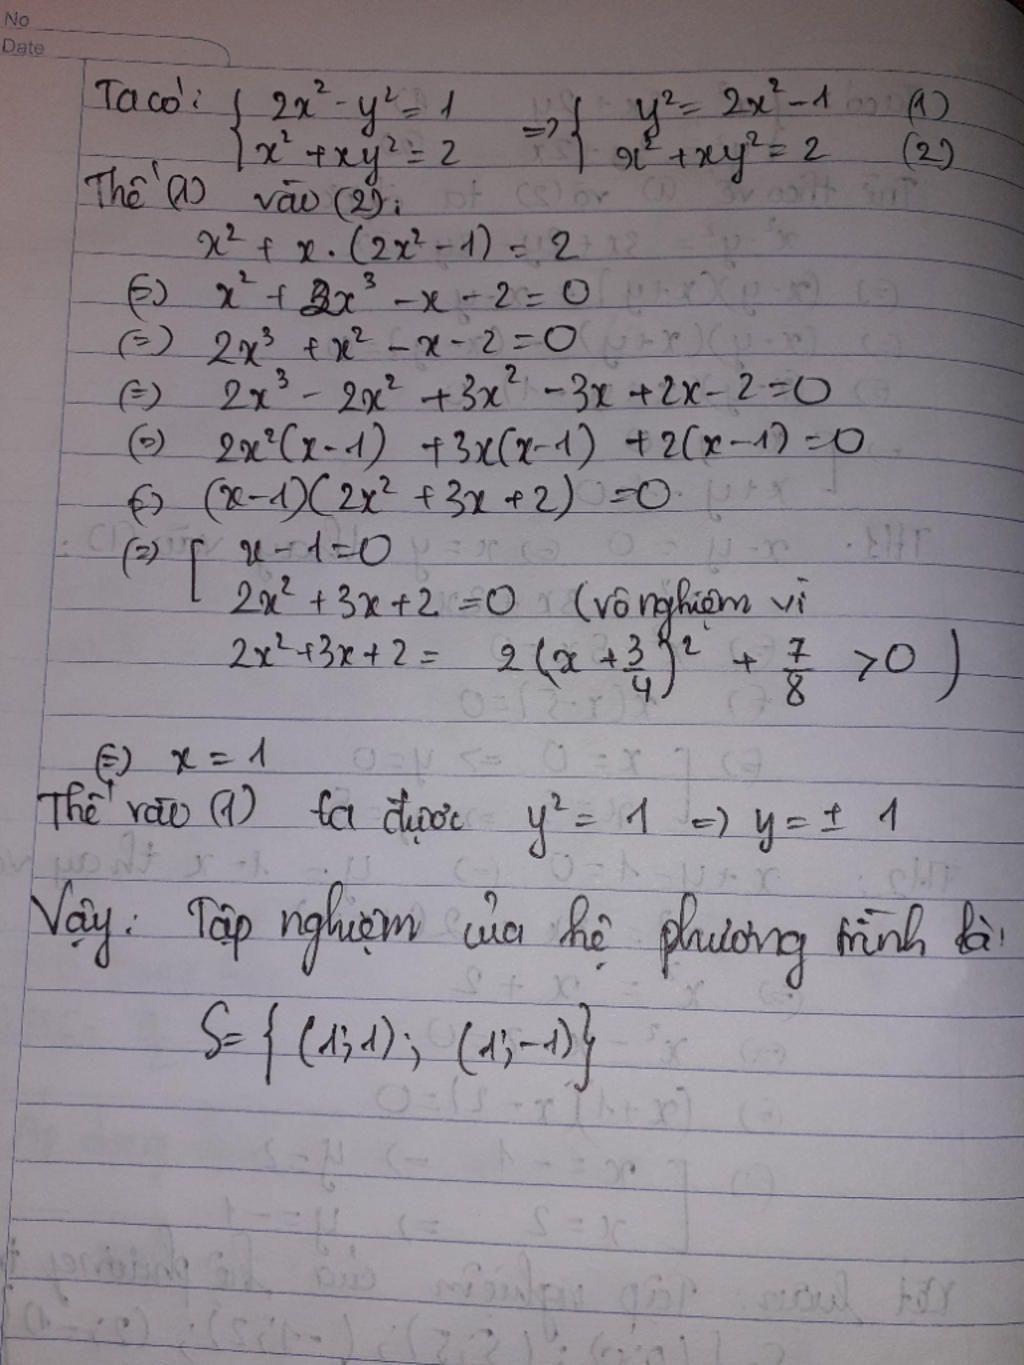 No
Date
Ta có: { 2x² - y² = 1 => { y² = 2x² - 1 (1)
x² + xy² = 2 x² + xy² = 2 (2)
Thế (1) vào (2):
x² + x.(2x² - 1) = 2
(=) x² + 2x³ - x - 2 = 0
(=) 2x³ + x² - x - 2 = 0
(=) 2x³ - 2x² + 3x² - 3x + 2x - 2 = 0
(=) 2x²(x-1) + 3x(x-1) + 2(x-1) = 0
(=) (x-1)(2x² + 3x + 2) = 0
(=) [ x - 1 = 0
2x² + 3x + 2 = 0 (vô nghiệm vì
2x² + 3x + 2 = 2(x + 3/4)² + 7/8 > 0)
(=) x = 1
Thế vào (1) ta được y² = 1 => y = ± 1
Vậy: Tập nghiệm của hệ phương trình là:
S = { (1;1); (1;-1)}